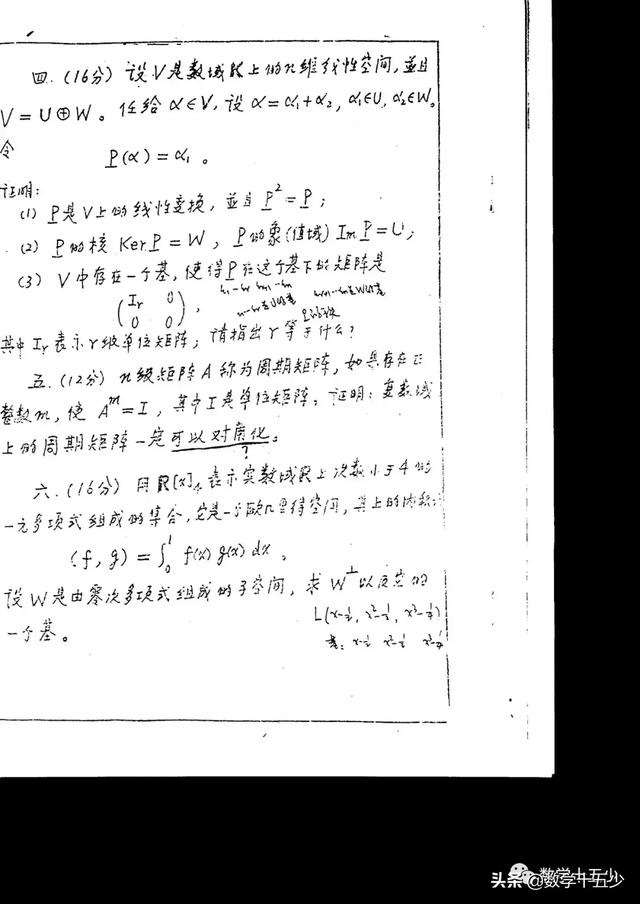 四.(16分) 设V是数域K上的n维线性空间,並且
V=U⊕W。任给α∈V,设α=α₁+α₂,α₁∈U,α₂∈W。
令
P(α)=α₁。
证明:
(1) P是V上的线性变换,並且P²=P;
(2) P的核Ker P=W,P的象(值域)Im P=U;
(3) V中存在一个基,使得P在这个基下的矩阵是
(Iᵣ 0
0 0),
其中Iᵣ表示r级单位矩阵;请指出r等于什么?
五.(12分) n级矩阵A称为周期矩阵,如果存在正
整数m,使Aᵐ=I,其中I是单位矩阵。证明:复数域
上的周期矩阵一定可以对角化。
?
六.(16分) 用R[x]₄表示实数域R上次数小于4的
一元多项式组成的集合,它是一个欧几里得空间,其上的内积:
(f,g)=∫₀¹f(x)g(x)dx。
设W是由零次多项式组成的子空间,求W⊥以及它的
一个基。
L(x-½, x²-⅓, x³-¼)
基: x-½ x²-⅓ x³-¼
数学十五少
头条@数学十五少